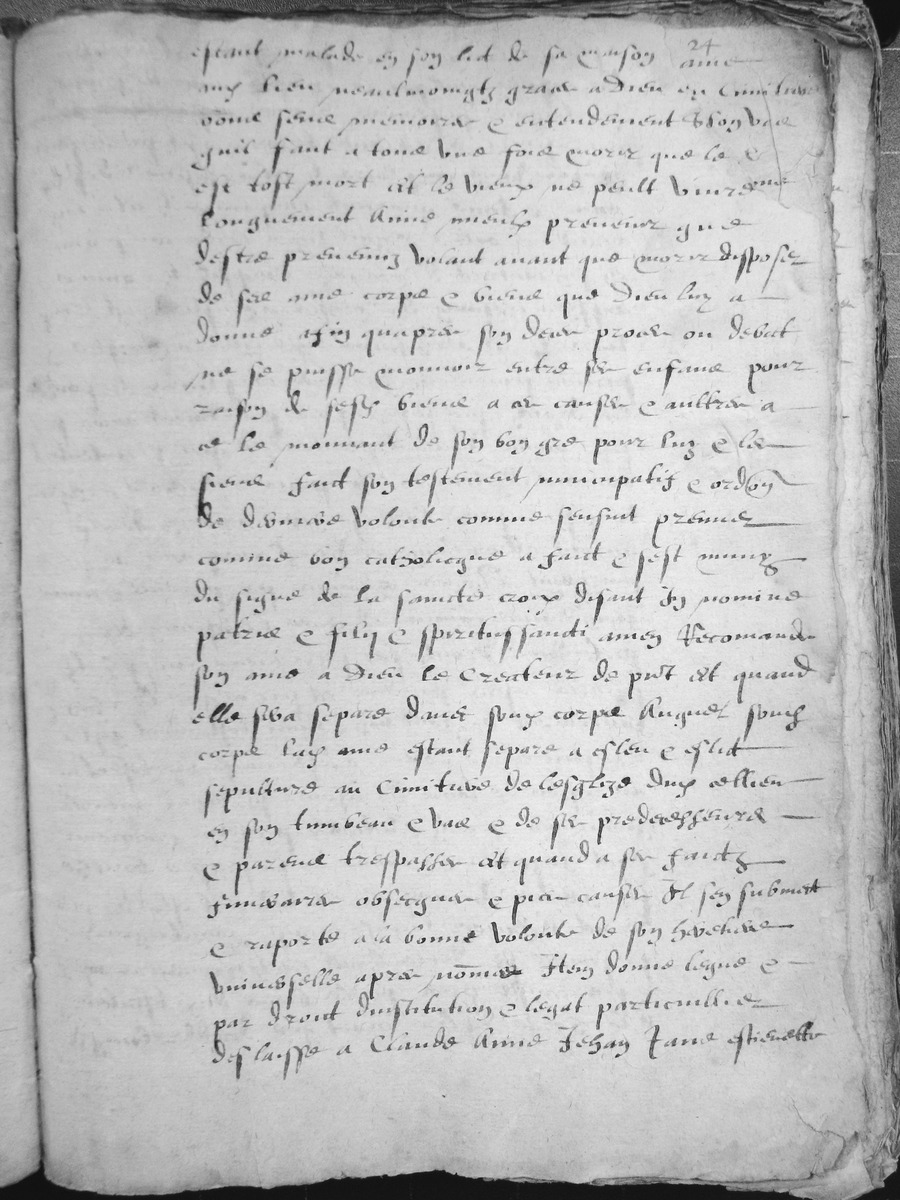 24
estant malade en son lict de sa maison
aud lieu neaulmoingtz graces a Dieu en
bonne sene memoires & entendement
quil fault a tous une fois morir que le
est tost mort et le vieux ne peult vivre
longuement Aime mieulx prevenir que
destre prevenuz volant avant que morir disposer
de ses ame corps & biens que Dieu luy a
donne afin quapres son deces proces ou debat
ne se puisse mouvoir entre ses enfans pour
raison de sesd biens a ces causes & aultres a
ce le mouvant de son bon gre pour luy & les
siens faict son testement nuncupatif & ordon
de derniere volonte comme sensuit premier
comme bon catholicque a faict & sest muny
du signe de la saincte croix disant In nomine
patris & filij & spiritussancti amen Recomande
son ame a Dieu le Createur de put et quand
elle sera separe davec sond corps Auquel sond
corps lad ame estant separe a esleu & eslict
sepulture au Cimitiere de lesglize dud cellieu
en son tumbeau & vas & de ses predecesseurs
& parens trespasses et quand a ses faictz
funeraires obseques & pies causes Il sen submect
& raporte a la bonne volonte de son heretiere
universelle apres nomee Item donne legue &
par droict dinstitution & legat particuillier
deslaisse a Claude Anne Jehan Jane estienette